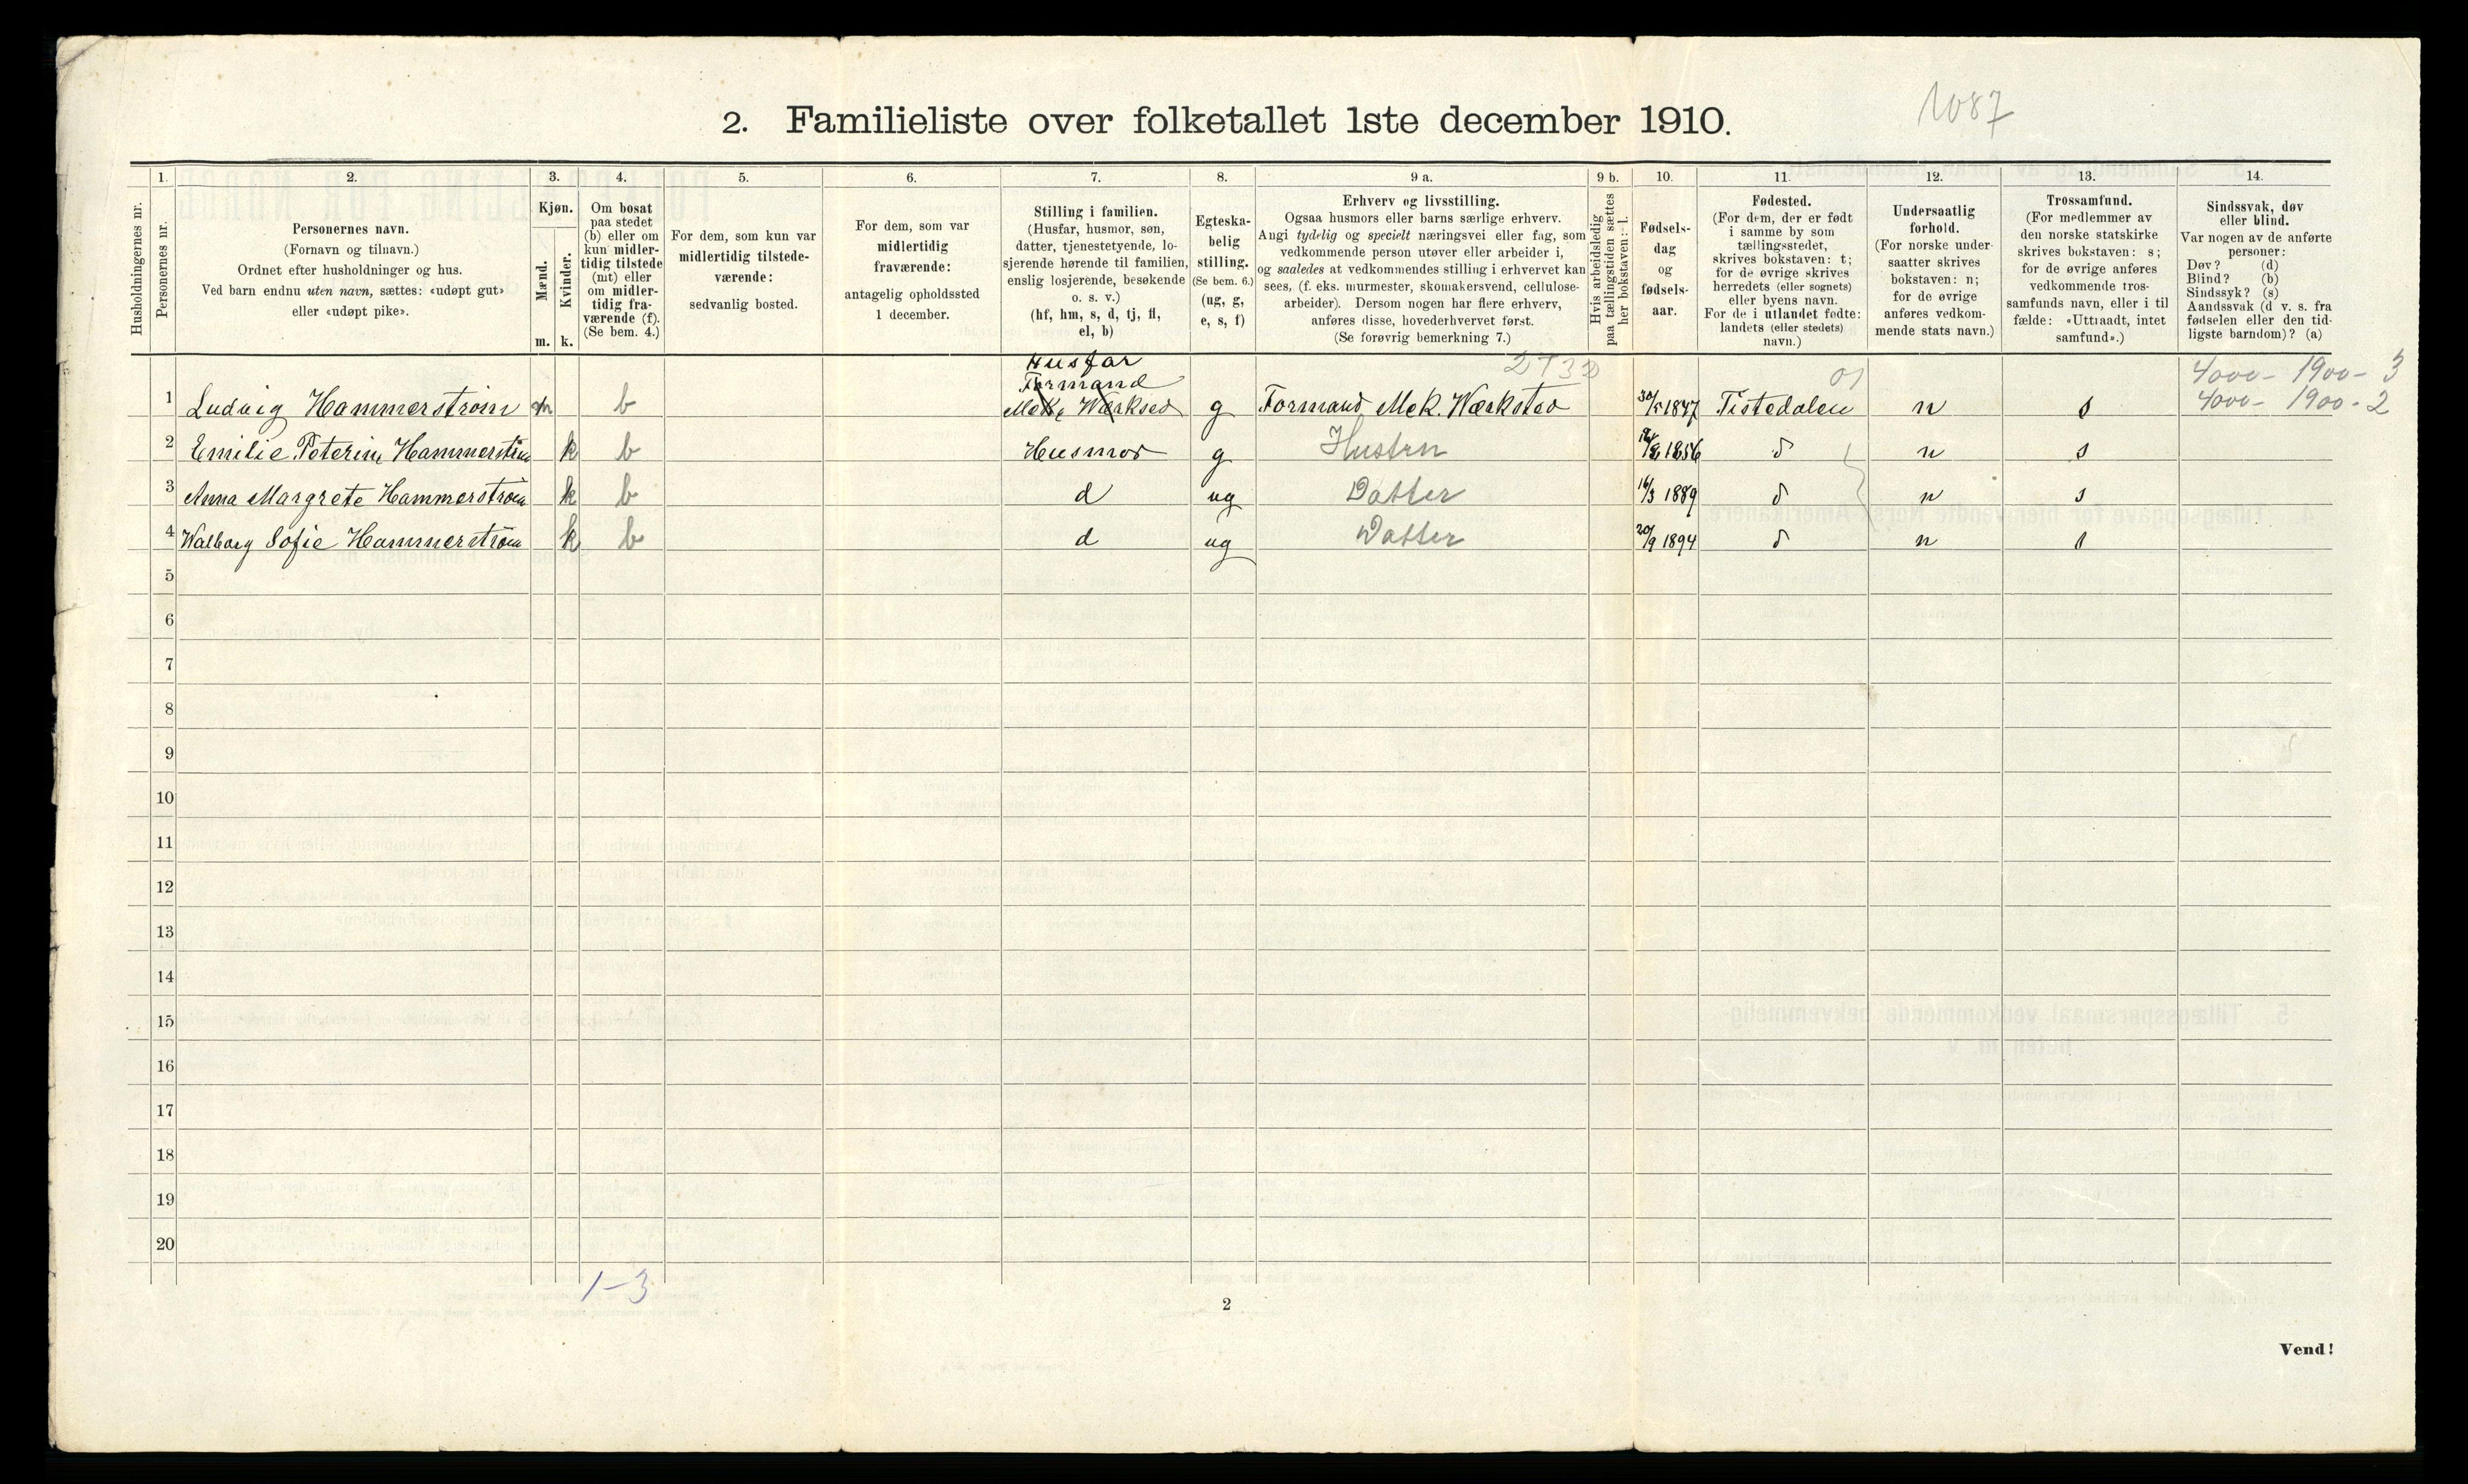 1087
2. Familieliste over folketallet 1ste december 1910.
1. 2. 3. 4. 5. 6. 7. 8. 9 a. 9 b. 10. 11. 12. 13. 14.
Husholdningernes nr.
Personernes nr.
Personernes navn.
(Fornavn og tilnavn.)
Ordnet efter husholdninger og hus.
Ved barn endnu uten navn, sættes: «udøpt gut»
eller «udøpt pike».
Kjøn.
Mænd.
Kvinder.
m. k.
Om bosat
paa stedet
(b) eller om
kun midler-
tidig tilstede
(mt) eller
om midler-
tidig fra-
værende (f).
(Se bem. 4.)
For dem, som kun var
midlertidig tilstede-
værende:
sedvanlig bosted.
For dem, som var
midlertidig
fraværende:
antagelig opholdssted
1 december.
Stilling i familien.
(Husfar, husmor, søn,
datter, tjenestetyende, lo-
sjerende hørende til familien,
enslig losjerende, besøkende
o. s. v.)
(hf, hm, s, d, tj, fl,
el, b)
Egteska-
belig
stilling.
(Se bem. 6.)
(ug, g,
e, s, f)
Erhverv og livsstilling.
Ogsaa husmors eller barns særlige erhverv.
Angi tydelig og specielt næringsvei eller fag, som
vedkommende person utøver eller arbeider i,
og saaledes at vedkommendes stilling i erhvervet kan
sees, (f. eks. murmester, skomakersvend, cellulose-
arbeider). Dersom nogen har flere erhverv,
anføres disse, hovederhvervet først.
(Se forøvrig bemerkning 7.)
Hvis arbeidsledig
paa tællingstiden sættes
her bokstaven: l.
Fødsels-
dag
og
fødsels-
aar.
Fødested.
(For dem, der er født
i samme by som
tællingsstedet,
skrives bokstaven: t;
for de øvrige skrives
herredets (eller sognets)
eller byens navn.
For de i utlandet fødte:
landets (eller stedets)
navn.)
Undersaatlig
forhold.
(For norske under-
saatter skrives
bokstaven: n;
for de øvrige
anføres vedkom-
mende stats navn.)
Trossamfund.
(For medlemmer av
den norske statskirke
skrives bokstaven: s;
for de øvrige anføres
vedkommende tros-
samfunds navn, eller i til
fælde: «Uttraadt, intet
samfund».)
Sindssvak, døv
eller blind.
Var nogen av de anførte
personer:
Døv? (d)
Blind? (b)
Sindssyk? (s)
Aandssvak (d v. s. fra
fødselen eller den tid-
ligste barndom)? (a)
Husfar
Formand 01 4000 - 1900 - 3
1 Ludvig Hammerstrøm m b Mek. g Formand Mek. Værksted 30/5 1847 Tistedalen n s 4000 - 1900 - 2
2 Emilie Peterine Hammerstrøm k b Husmor g Hustru 1856 n s
3 Anna Margrete Hammerstrøm k b d ug Datter 16/3 1889 n s
4 Walborg Sofie Hammerstrøm k b d ug Datter 20/9 1894 n s
5
6
7
8
9
10
11
12
13
14
15
16
17
18
19
20
1-3
2
Vend!